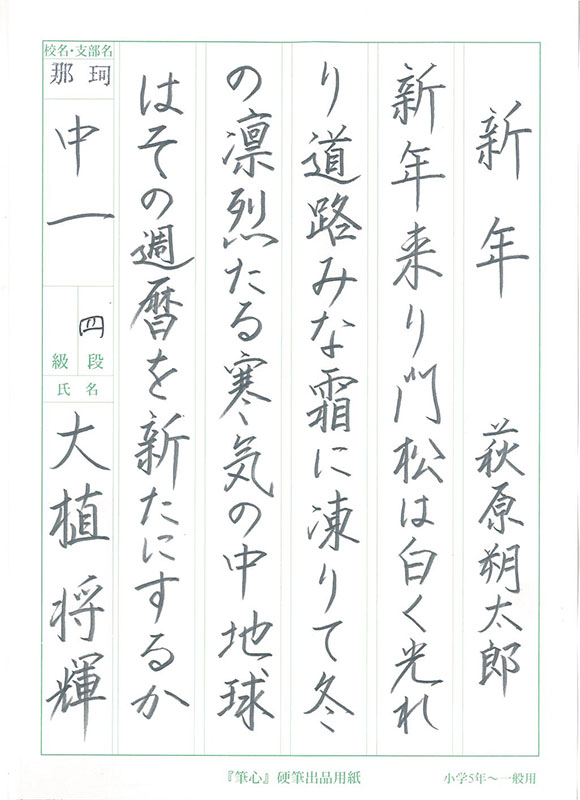 新年 萩原朔太郎
新年来り門松は白く光れ
り道路みな霜に凍りて冬
の凛烈たる寒気の中地球
はその週暦を新たにするか
校名・支部名
那珂
中一
四
級 段
氏名
大植将輝
『筆心』硬筆出品用紙
小学5年〜一般用